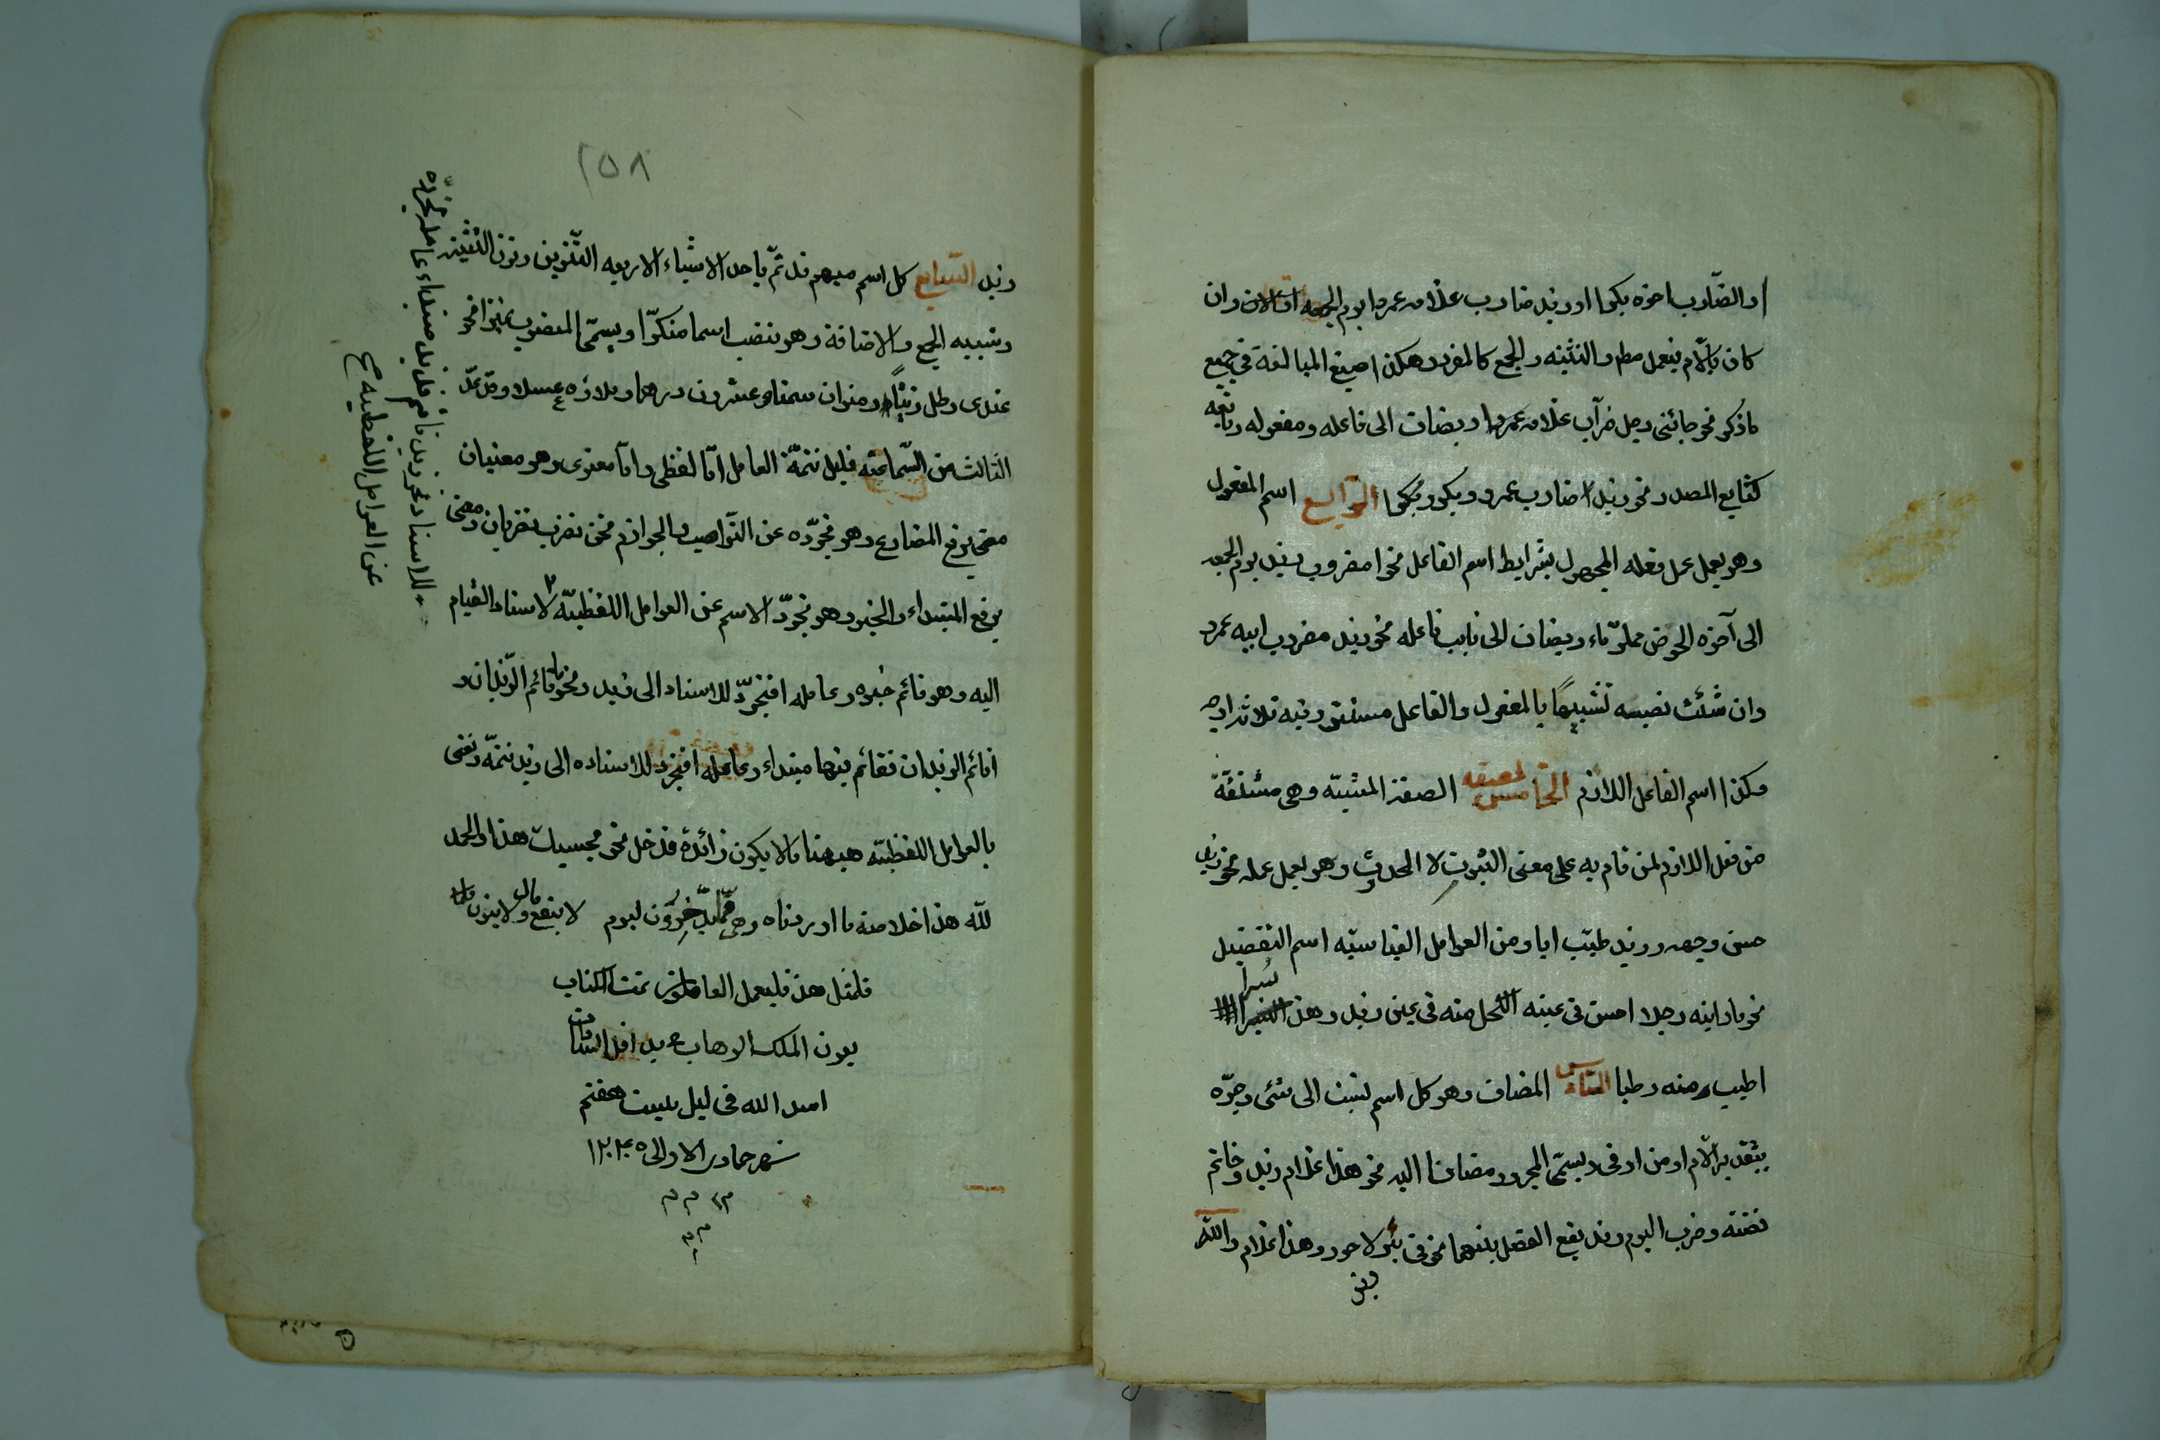 او الضّارب اخوه بكرا او زيد ضارب غلامه عمروا يوم الجمعه او الان وان
كان باللّام فيعمل مطم والتثنيه والجمع كالمفرد وهكذا صيغ المبالغة فى جميع
ماذكر نحو جائنى رجل ضرّاب غلامه عمروا ويضاف الى فاعله ومفعوله وتابعه
كتابع المصدر نحو زيد ضارب عمرو وبكر وبكرا الرّابع اسم المفعول
وهو يعمل عمل فعله المجهول بشرايط اسم الفاعل نحو امضروب زيد يوم الجمعه
الى آخره الحوض مملوّ ماء ويضاف الى نايب فاعله نحو زيد مضروب ابيه عمرو
وان شئت نصبته تشبيهًا بالمفعول والفاعل مستتر وفيه ثلاثه اوجه
وكذا اسم الفاعل اللازم الخامس الصفة المشبّهه وهى مشتقّة
من فعل اللازم لمن قام به على معنى الثبوت لا الحدوث وهو يعمل عمله نحو زيد
حسن وجهه وزيد طيّب ابا ومن العوامل القياسيّه اسم التفضيل
نحو ما راينه رجلا احسن فى عينه الكحل منه فى عين زيد وهذا بسرا
اطيب منه رطبا السّادس المضاف وهو كل اسم نسب الى شئى وجرّه
بتقدير اللّام او من او فى ويسمّى المجرور مضافا اليه نحو هذا غلام زيد وخاتم
فضّته وضرب اليوم وقد يقع الفصل بينهما نحو فى بئر لا حور وهذا غلام والله
زيد
١٥٨
وزيد السّابع كل اسم مبهم قد تمّ باحد الاشياء الاربعه التّنوين ونون التثنيه
وشبيه الجمع والاضافة وهو ينصب اسما منكرّا ويسمّى المنصوب تميزا نحو
عندى رطل زيتًا ومنوان سمنا وعشرون درهما وملاؤه عسلا وقد عدّ
الثالث من السّماعيّه قليل تتمّة العامل امّا لفظى وامّا معنوى وهو معنيان
معنى يرفع المضارع وهو تجرّده عن النّواصب والجوازم نحو تضرب تضربان ومعنى
يرفع المبتداء والخبر وهو تجرّد الاسم عن العوامل اللفظيّه لاسناد القيام
اليه وهو قائم خبره وعامله اى تجرّد للاسناد الى زيد ونحو ما قائم الزّيدان و
اقائم الزيدان فقائم فيهما مبتداء وعامله اى تجرّد للاسناده الى زيد تتمّه ونعنى
بالعوامل اللفظيّه هيهنا مالا يكون زائدة فدخل نحو بحسبك هذا والحمد
لله هذا خلاصة ما اوردناه وهى ليوم لا ينفع مال ولا بنون
فلمثل هذا فليعمل العاملون تمت الكتاب
بعون الملك الوهاب بيد اقل السّادات
اسد الله فى ليل بيست هفتم
شهر جمادى الاولى
عن العوامل اللفظيه